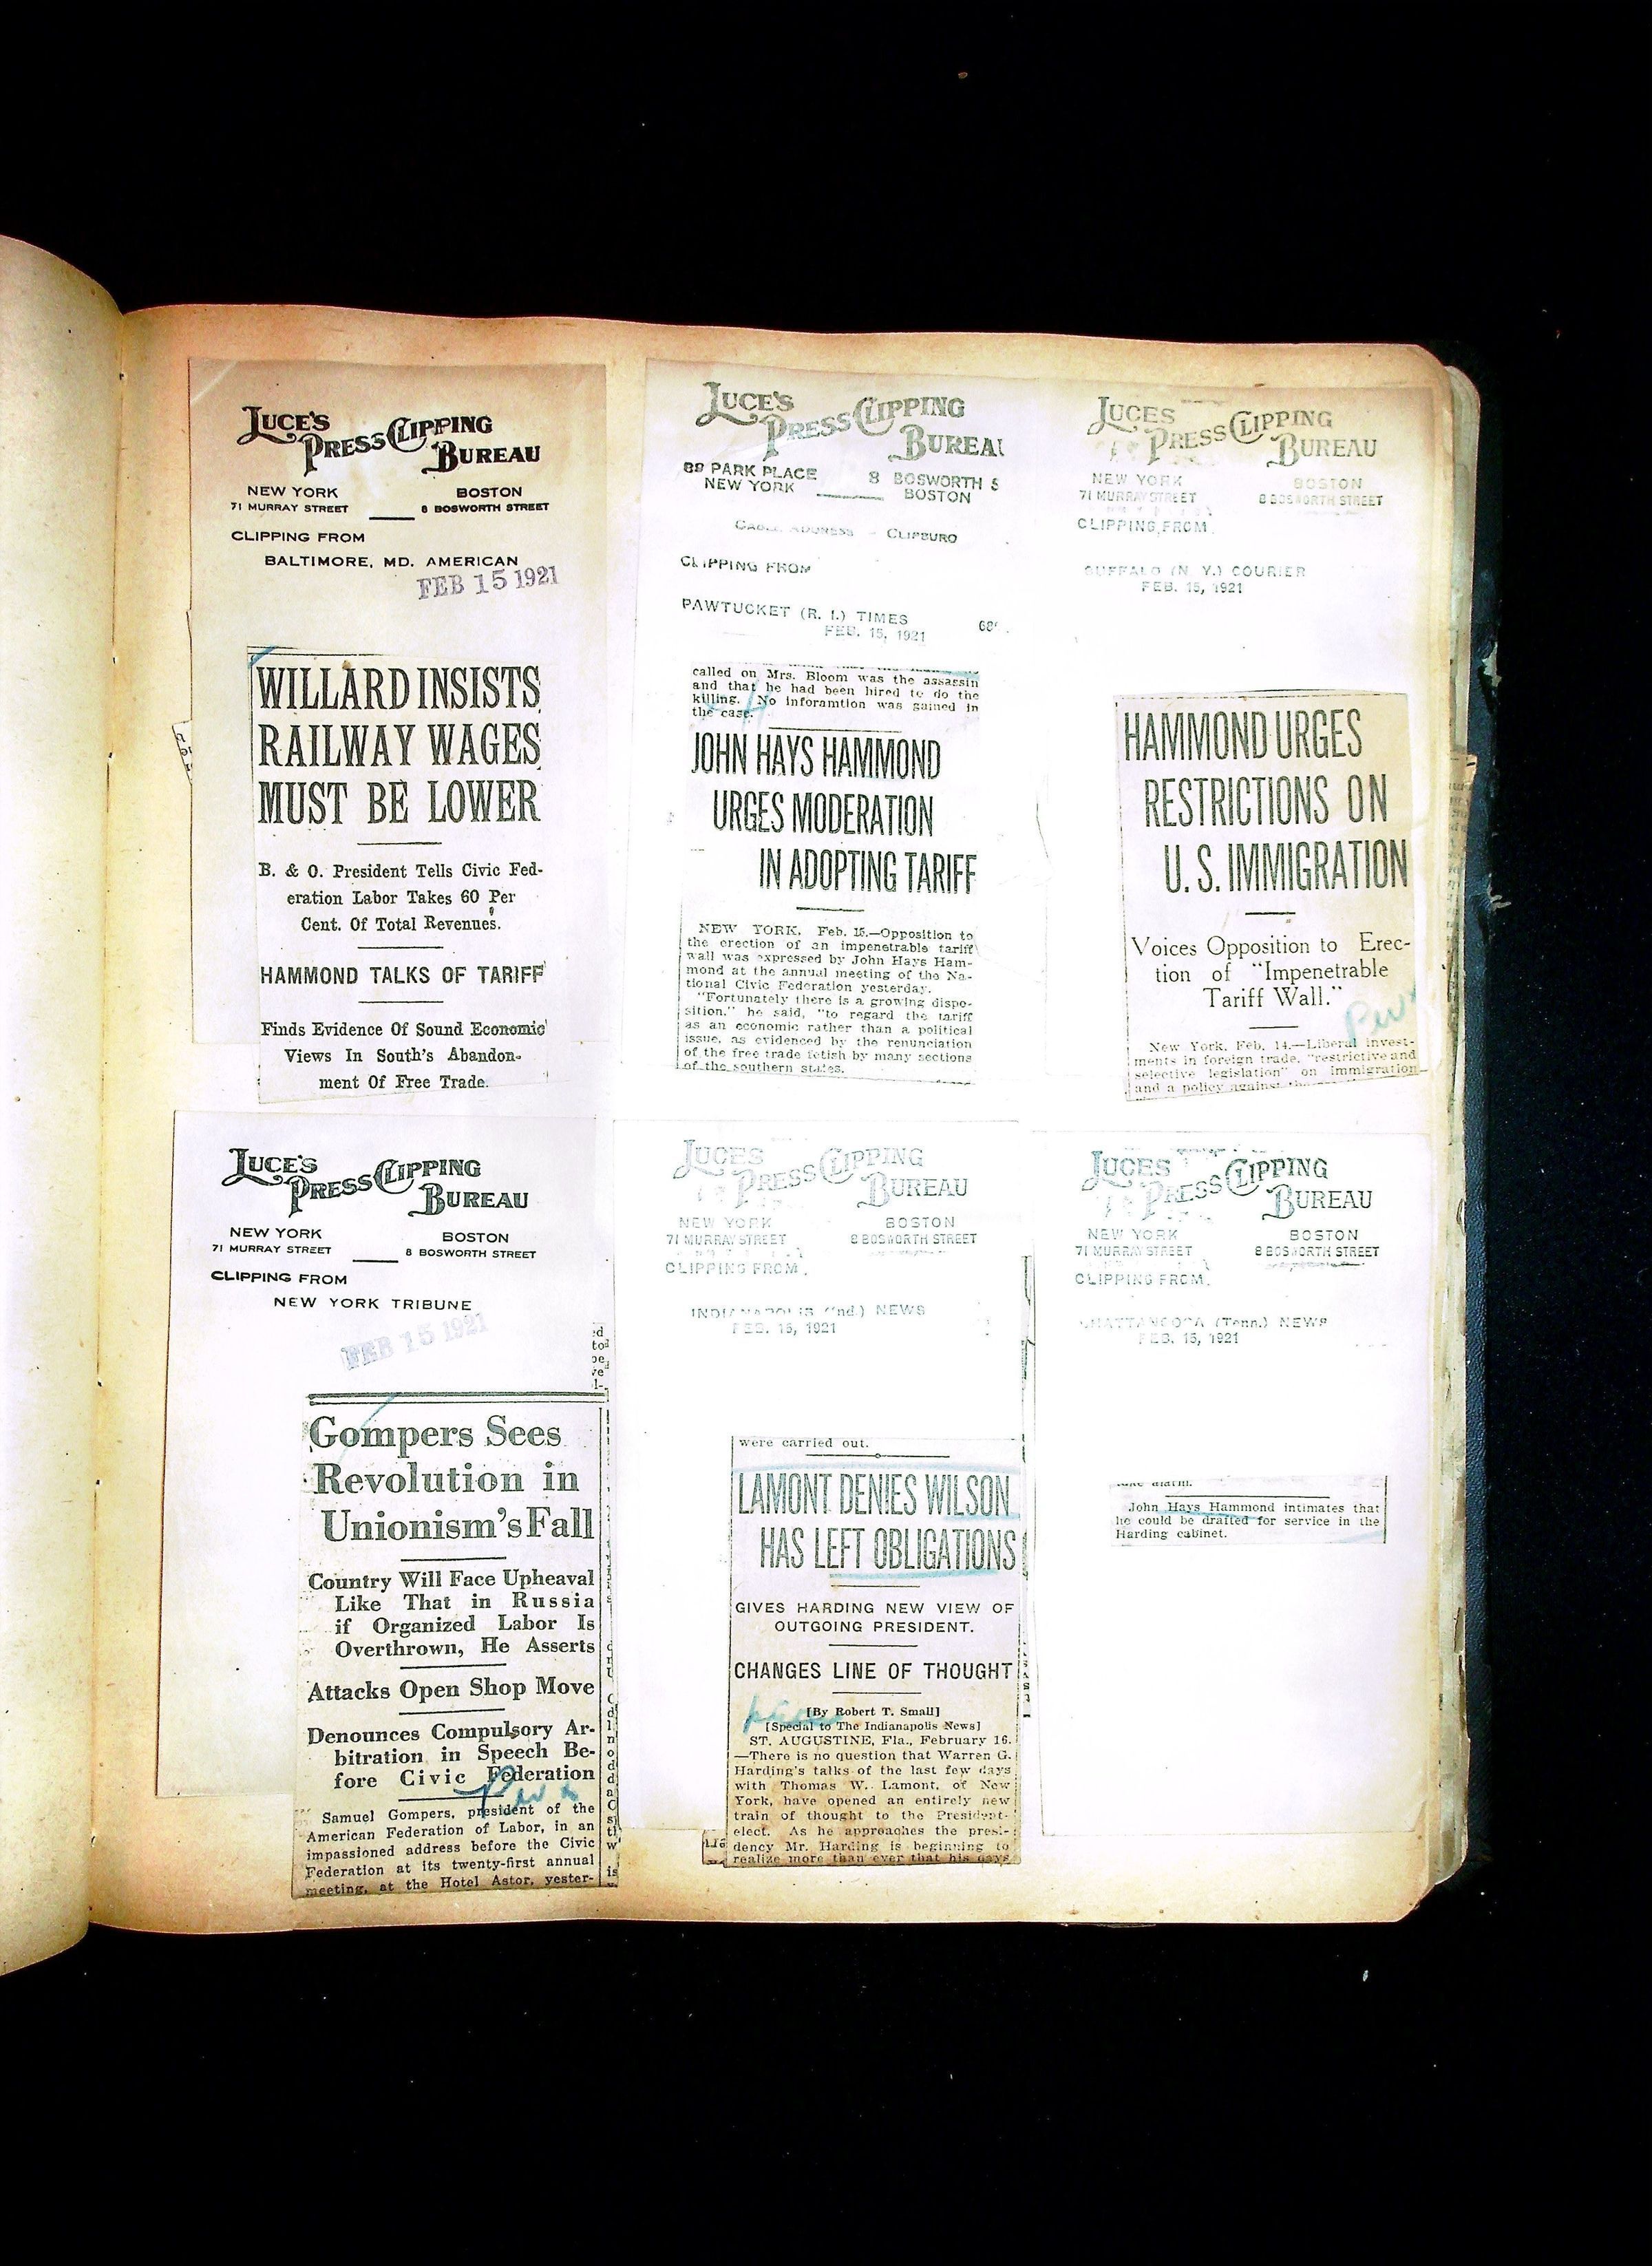 LUCE'S
PRESS CLIPPING
BUREAU
NEW YORK BOSTON
71 MURRAY STREET 8 BOSWORTH STREET
CLIPPING FROM
BALTIMORE, MD. AMERICAN
FEB 15 1921
WILLARD INSISTS
RAILWAY WAGES
MUST BE LOWER
B. & O. President Tells Civic Fed-
eration Labor Takes 60 Per
Cent. Of Total Revenues.
HAMMOND TALKS OF TARIFF
Finds Evidence Of Sound Economic
Views In South's Abandon-
ment Of Free Trade.
LUCE'S
PRESS CLIPPING
BUREAU
88 PARK PLACE 8 BOSWORTH S
NEW YORK BOSTON
CABLE ADDRESS - CLIPBURO
CLIPPING FROM
PAWTUCKET (R. I.) TIMES
FEB. 15, 1921
called on Mrs. Bloom was the assassin
and that he had been hired to do the
killing. No inforamtion was gained in
the case.
JOHN HAYS HAMMOND
URGES MODERATION
IN ADOPTING TARIFF
NEW YORK, Feb. 15.—Opposition to
the erection of an impenetrable tariff
wall was expressed by John Hays Ham-
mond at the annual meeting of the Na-
tional Civic Federation yesterday.
"Fortunately there is a growing dispo-
sition," he said, "to regard the tariff
as an economic rather than a political
issue, as evidenced by the renunciation
of the free trade fetish by many sections
of the southern states.
LUCES
PRESS CLIPPING
BUREAU
NEW YORK BOSTON
71 MURRAY STREET 8 BOSWORTH STREET
CLIPPING FROM
BUFFALO (N. Y.) COURIER
FEB. 15, 1921
HAMMOND URGES
RESTRICTIONS ON
U. S. IMMIGRATION
Voices Opposition to Erec-
tion of "Impenetrable
Tariff Wall."
New York, Feb. 14.—Liberal invest-
ments in foreign trade, "restrictive and
selective legislation" on immigration
and a policy against the
LUCE'S
PRESS CLIPPING
BUREAU
NEW YORK BOSTON
71 MURRAY STREET 8 BOSWORTH STREET
CLIPPING FROM
NEW YORK TRIBUNE
FEB 15 1921
Gompers Sees
Revolution in
Unionism's Fall
Country Will Face Upheaval
Like That in Russia
if Organized Labor Is
Overthrown, He Asserts
Attacks Open Shop Move
Denounces Compulsory Ar-
bitration in Speech Be-
fore Civic Federation
Samuel Gompers, president of the
American Federation of Labor, in an
impassioned address before the Civic
Federation at its twenty-first annual
meeting, at the Hotel Astor, yester-
LUCES
PRESS CLIPPING
BUREAU
NEW YORK BOSTON
71 MURRAY STREET 8 BOSWORTH STREET
CLIPPING FROM
INDIANAPOLIS (Ind.) NEWS
FEB. 16, 1921
were carried out.
LAMONT DENIES WILSON
HAS LEFT OBLIGATIONS
GIVES HARDING NEW VIEW OF
OUTGOING PRESIDENT.
CHANGES LINE OF THOUGHT
[By Robert T. Small]
[Special to The Indianapolis News]
ST. AUGUSTINE, Fla., February 16.
—There is no question that Warren G.
Harding's talks of the last few days
with Thomas W. Lamont, of New
York, have opened an entirely new
train of thought to the President-
elect. As he approaches the presi-
dency Mr. Harding is beginning to
realize more than ever that his days
LUCES
PRESS CLIPPING
BUREAU
NEW YORK BOSTON
71 MURRAY STREET 8 BOSWORTH STREET
CLIPPING FROM
CHATTANOOGA (Tenn.) NEWS
FEB. 15, 1921
alarm.
John Hays Hammond intimates that
he could be drafted for service in the
Harding cabinet.